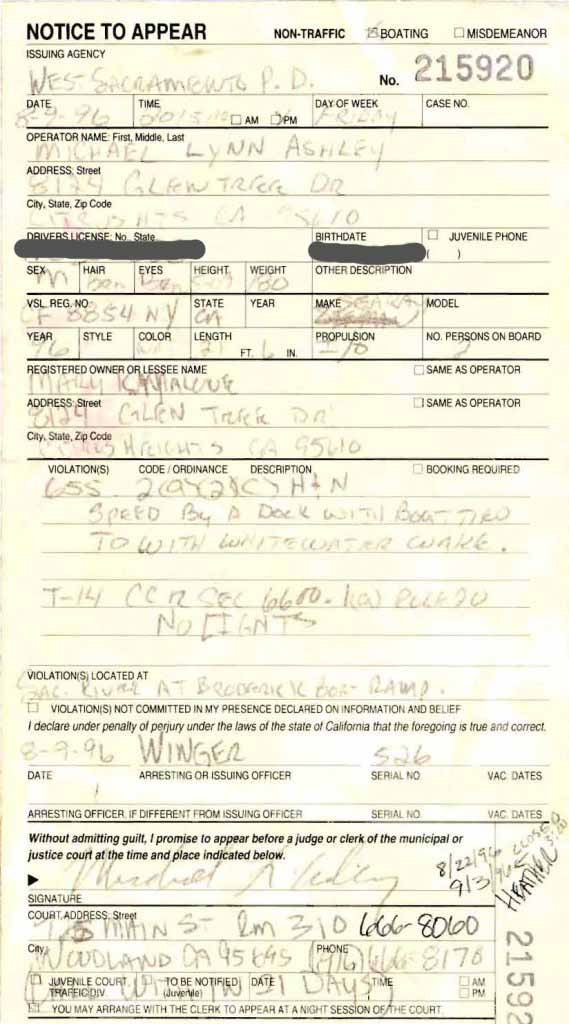 NOTICE TO APPEAR NON-TRAFFIC BOATING MISDEMEANOR
ISSUING AGENCY
WEST SACRAMENTO P.D. No. 215920
DATE TIME DAY OF WEEK CASE NO.
8-9-96 AM PM FRIDAY
OPERATOR NAME: First, Middle, Last
MICHAEL LYNN ASHLEY
ADDRESS: Street
8124 GLEN TREE DR
City, State, Zip Code
CA 95610
DRIVERS LICENSE: No. State BIRTHDATE JUVENILE PHONE
( )
SEX HAIR EYES HEIGHT WEIGHT OTHER DESCRIPTION
M 180
VSL. REG. NO. STATE YEAR MAKE MODEL
CF 8854 NY CA
YEAR STYLE COLOR LENGTH PROPULSION NO. PERSONS ON BOARD
76 21 FT. 6 IN. I/O 2
REGISTERED OWNER OR LESSEE NAME SAME AS OPERATOR
MARY
ADDRESS: Street SAME AS OPERATOR
8124 GLEN TREE DR
City, State, Zip Code
HEIGHTS CA 95610
VIOLATION(S) CODE / ORDINANCE DESCRIPTION BOOKING REQUIRED
655.2(a)(2)(C) H+N
SPEED BY A DOCK WITH BOAT TIED
TO WITH WHITEWATER WAKE.
T-14 CCR SEC 6600. RULE 20
NO LIGHTS
VIOLATION(S) LOCATED AT
SAC. RIVER AT BRODERICK BOAT RAMP.
VIOLATION(S) NOT COMMITTED IN MY PRESENCE DECLARED ON INFORMATION AND BELIEF
I declare under penalty of perjury under the laws of the state of California that the foregoing is true and correct.
8-9-96 WINGER 526
DATE ARRESTING OR ISSUING OFFICER SERIAL NO. VAC. DATES
ARRESTING OFFICER, IF DIFFERENT FROM ISSUING OFFICER SERIAL NO. VAC. DATES
Without admitting guilt, I promise to appear before a judge or clerk of the municipal or
justice court at the time and place indicated below.
8/22/96
9/3/96
CLOSED
HEATHER
SIGNATURE
COURT ADDRESS: Street
725 MAIN ST RM 310 666-8060
City PHONE
WOODLAND CA 95695 (916) 666-8170
JUVENILE COURT TO BE NOTIFIED DATE TIME AM
TRAFFIC DIV. (Juvenile) PM
WITHIN 21 DAYS)
YOU MAY ARRANGE WITH THE CLERK TO APPEAR AT A NIGHT SESSION OF THE COURT.
215920